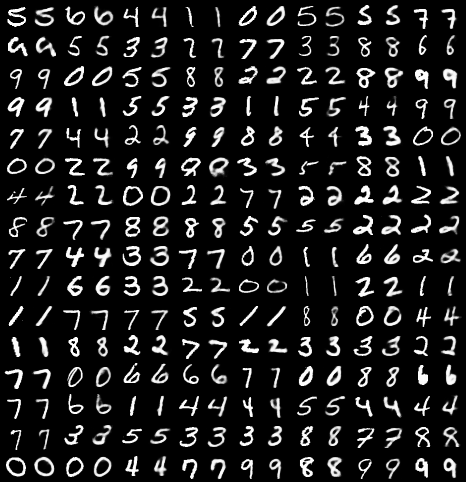 5 5 6 6 4 4 1 1 0 0 5 5 5 5 7 7
9 9 5 5 3 3 7 7 3 3 8 8 6 6
9 9 0 0 5 5 8 8 2 2 2 2 8 8 9 9
9 9 1 1 5 5 3 3 1 1 5 5 4 4 9 9
7 7 4 4 2 2 9 9 8 8 4 4 3 3 0 0
0 0 2 2 9 9 8 8 3 3 5 5 8 8 1 1
4 4 2 2 0 0 2 2 7 7 2 2 2 2 2 2
8 8 7 7 8 8 8 8 5 5 5 5 2 2 2 2
7 7 4 4 3 3 7 7 0 0 1 1 6 6 2 2
1 1 6 6 3 3 2 2 0 0 1 1 2 2 1 1
1 1 7 7 7 7 5 5 1 1 8 8 0 0 4 4
1 1 8 8 2 2 7 7 2 2 3 3 3 3 2 2
7 7 0 0 6 6 6 6 7 7 0 0 8 8 6 6
7 7 6 6 1 1 4 4 4 4 5 5 4 4 4 4
7 7 3 3 5 5 3 3 3 3 8 8 7 7 8 8
0 0 0 0 4 4 7 7 9 9 8 8 9 9 9 9